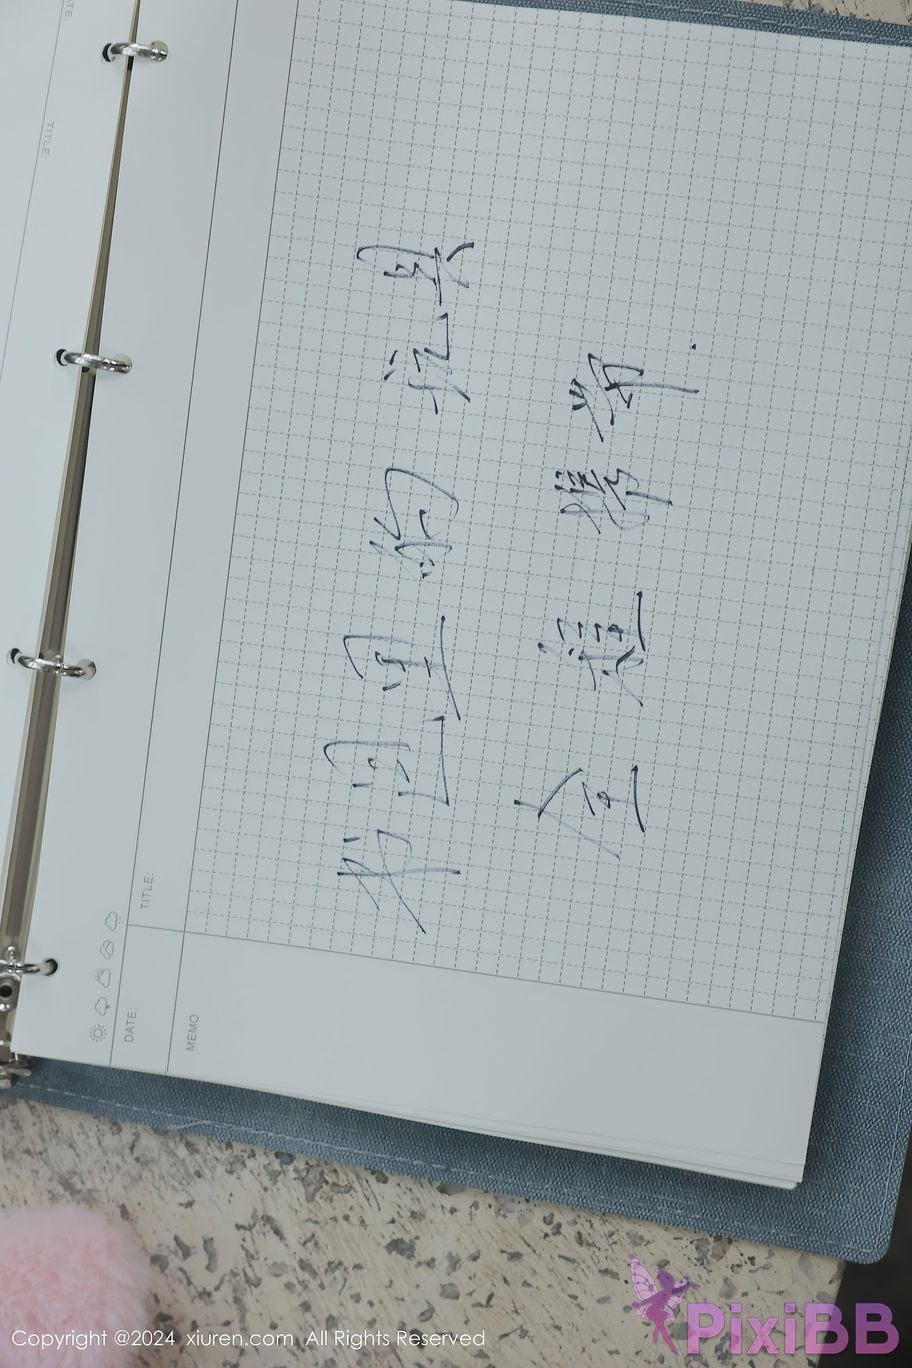 TITLE
TITLE:
DATE:
MEMO
书包里的玩具
全程携带.
Copyright @2024 xiuren.com All Rights Reserved
PixiBB